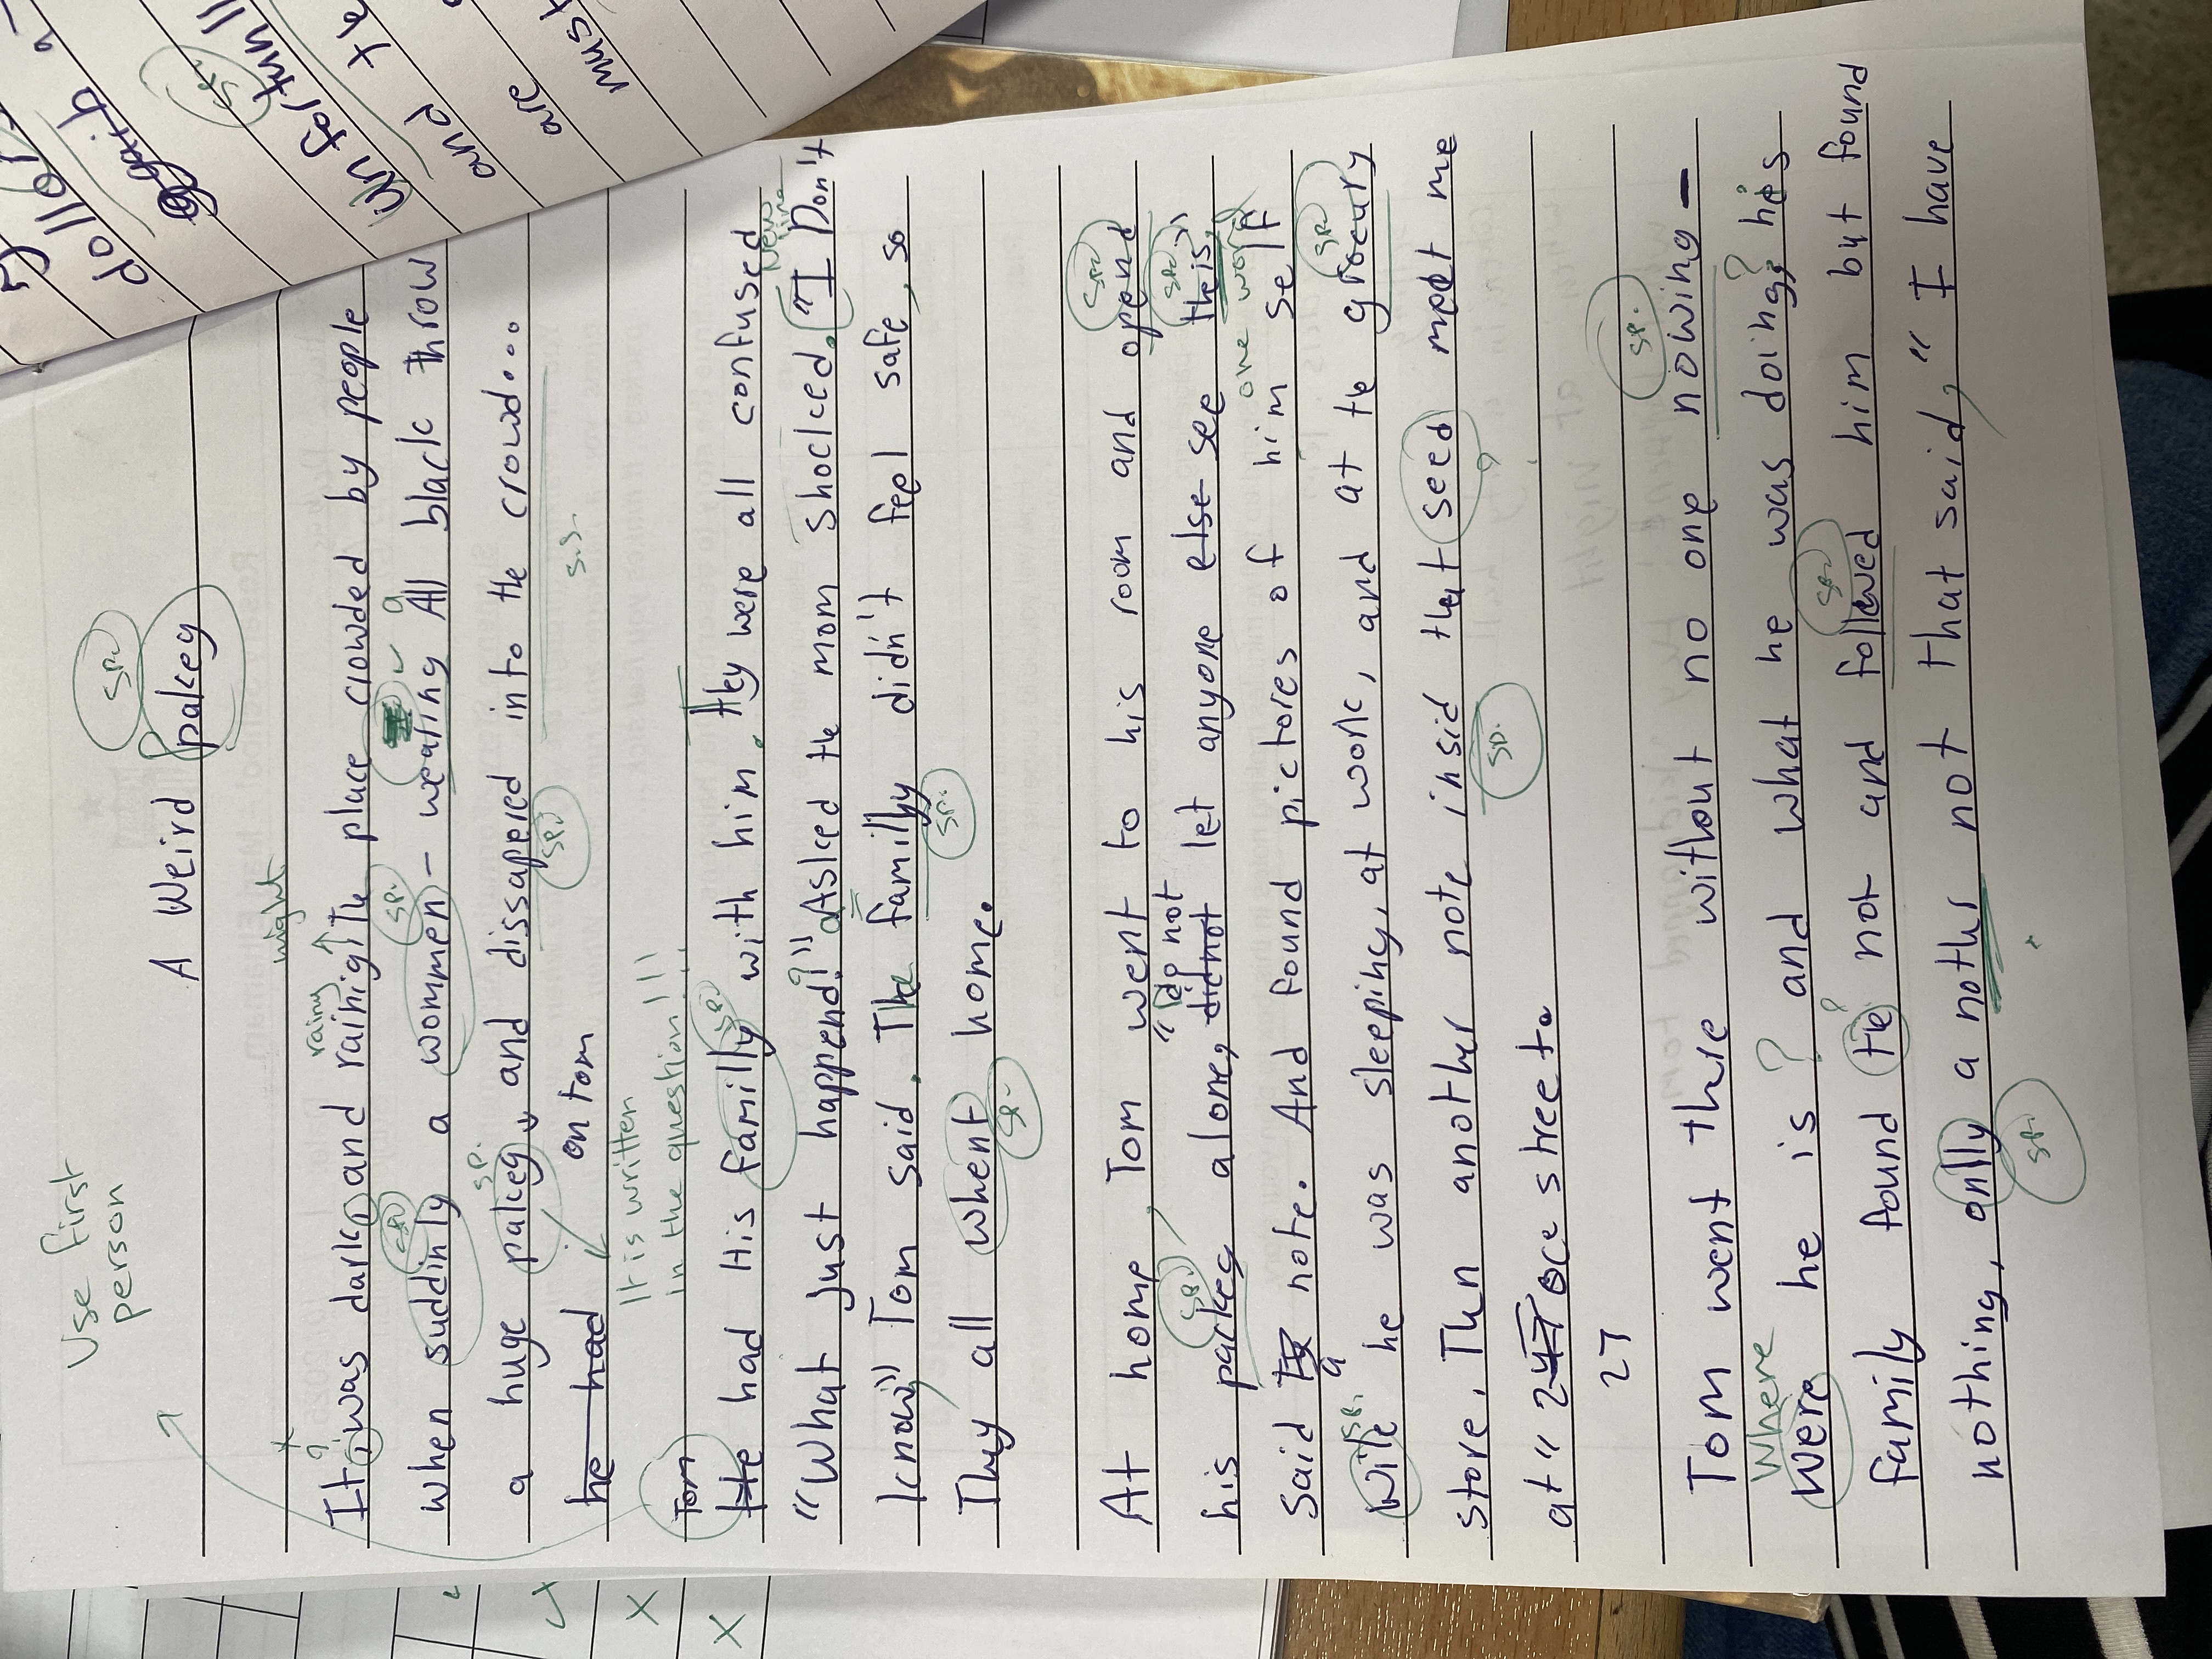 Use first
person
A Weird pakey
sp.
night
rainy
It was dark, and rainigt the place crowded by people
sp.
when suddinly a wommen - wearing All black throw
sp.
a huge pakey, and dissappered into the crowd...
sp.
s.s.
he had on tom
It is written
in the question!!!
Tom
He had His familly with him. they were all confused
sp.
New
line
"What just happend?" Asked the mom shocked. "I Don't
know" Tom said. The familly didn't feel safe, so
sp.
They all whent home.
sp.
At home, Tom went to his room and opend
sp.
"do not
sp.
his parkeg alone, did not let anyone else see this,
one word
said a note. And found pictores of him self
sp.
Wile he was sleeping, at work, and at the grocury
sp.
store. Then another note insid that seed meet me
sp.
at "24 oce street.
27
Tom went there without no one nowing -
sp.
where
were he is? and what he was doing? his
family found the not and follewed him but found
sp.
nothing, onlly a nother not that said, " I have
sp.
dollar
gaib
sp.
Unfortunll
and the
are
must